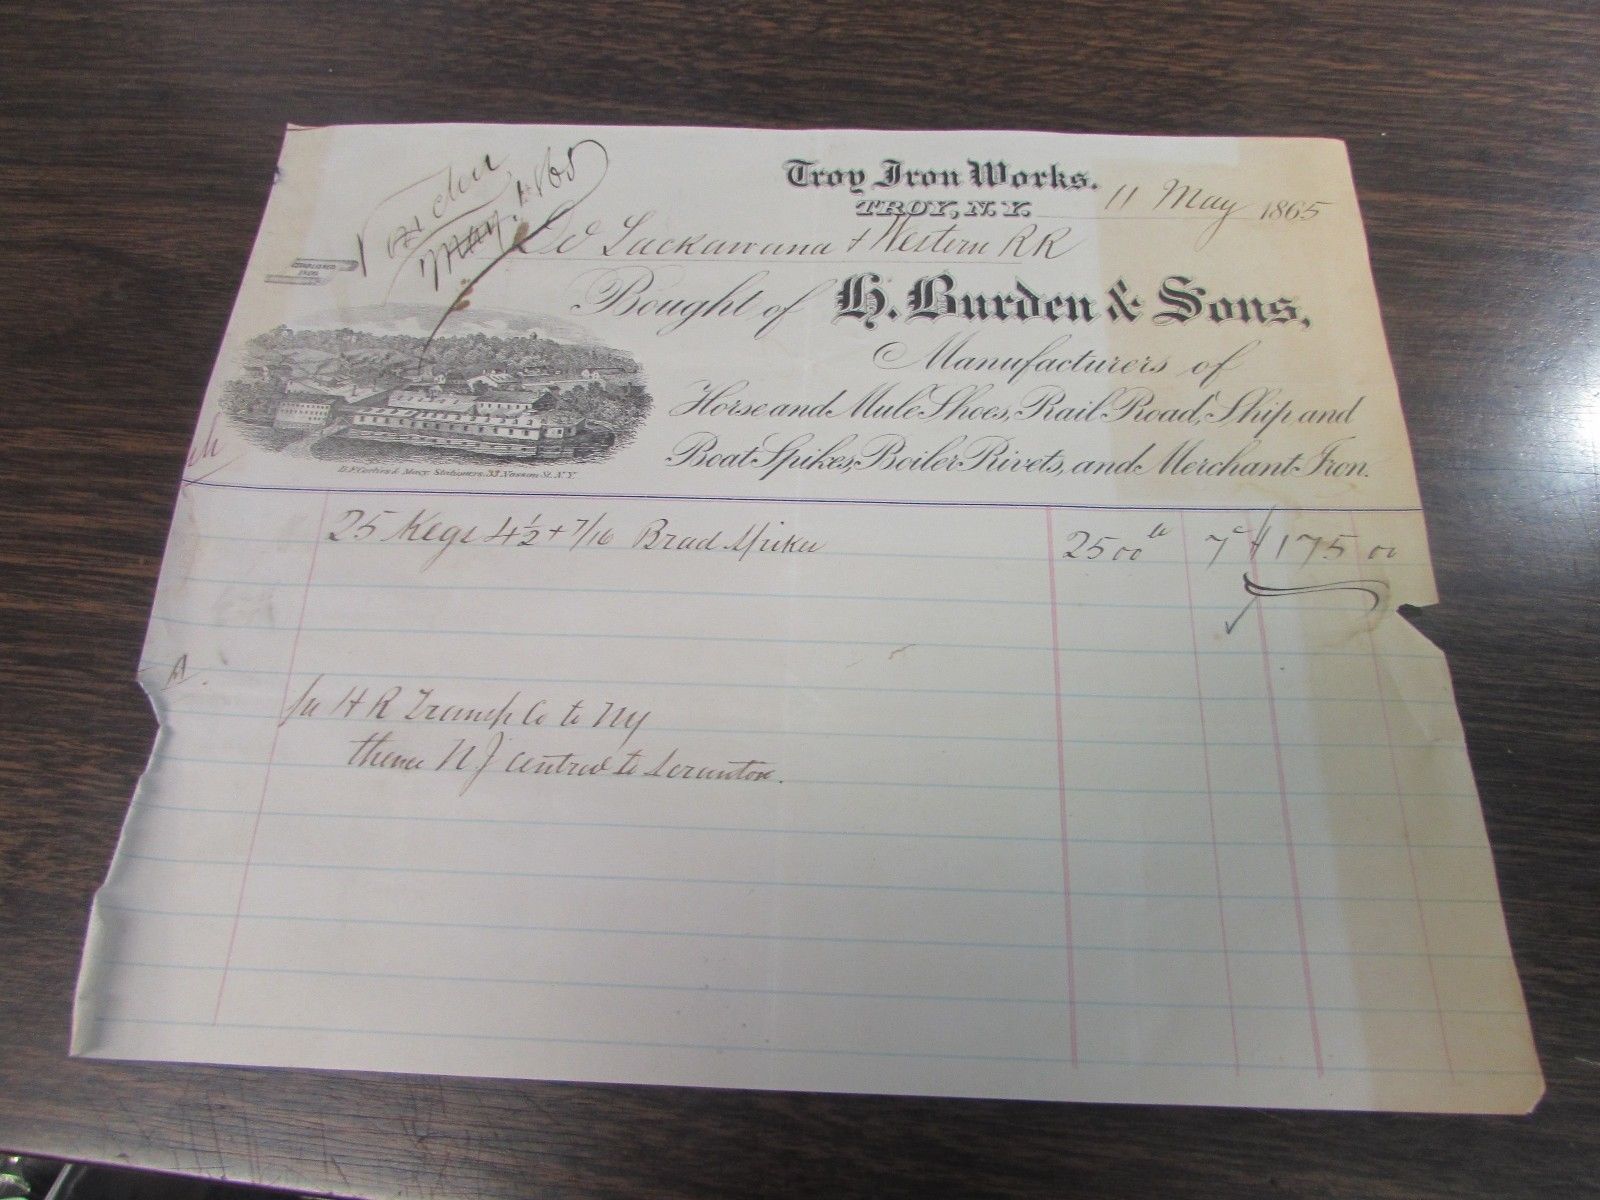 Burden
May 1865
Troy Iron Works.
TROY, N.Y. 11 May 1865
Lackawana & Western RR
ESTABLISHED
Bought of H. Burden & Sons,
Manufacturers of
Horse and Mule Shoes, Rail Road, Ship and
Boat Spikes, Boiler Rivets, and Merchant Iron.
Stationers, 33 Nassau St. N.Y.
25 Kegs 4½ + 7/16 Brad Spikes 2500 lb 7c $175 00
H R Transp Co to NY
thence N J Central to Scranton.